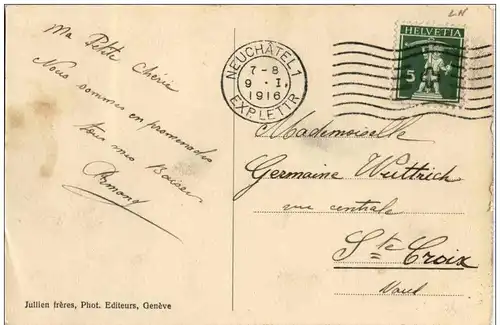 Ma Petite Chérie
Nous sommes en promenade
tous mes Baisers
Armand
Jullien frères, Phot. Editeurs, Genève
NEUCHÂTEL 1
7-8
9. I.
1916
EXP. LETTR.
HELVETIA
5
Mademoiselle
Germaine Wuttrich
rue centrale
Ste Croix
Vaud